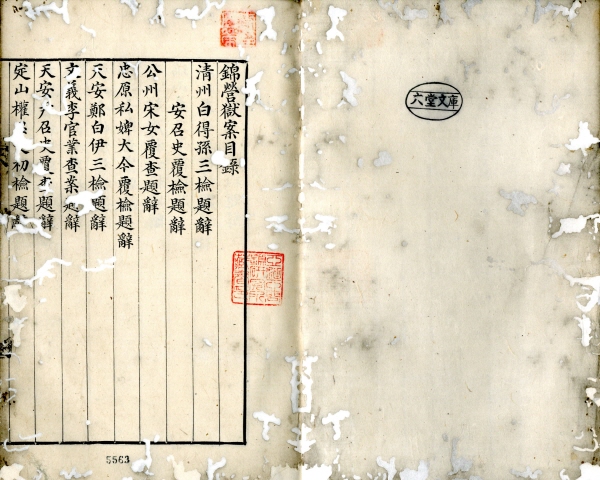 六堂文庫
錦營獄案目錄
清州白得孫三檢題辭
安召史覆檢題辭
公州宋女覆查題辭
忠原私婢大今覆檢題辭
天安鄭白伊三檢題辭
文義李官業查案題辭
天安召史覆查題辭
定山權初檢題
5563